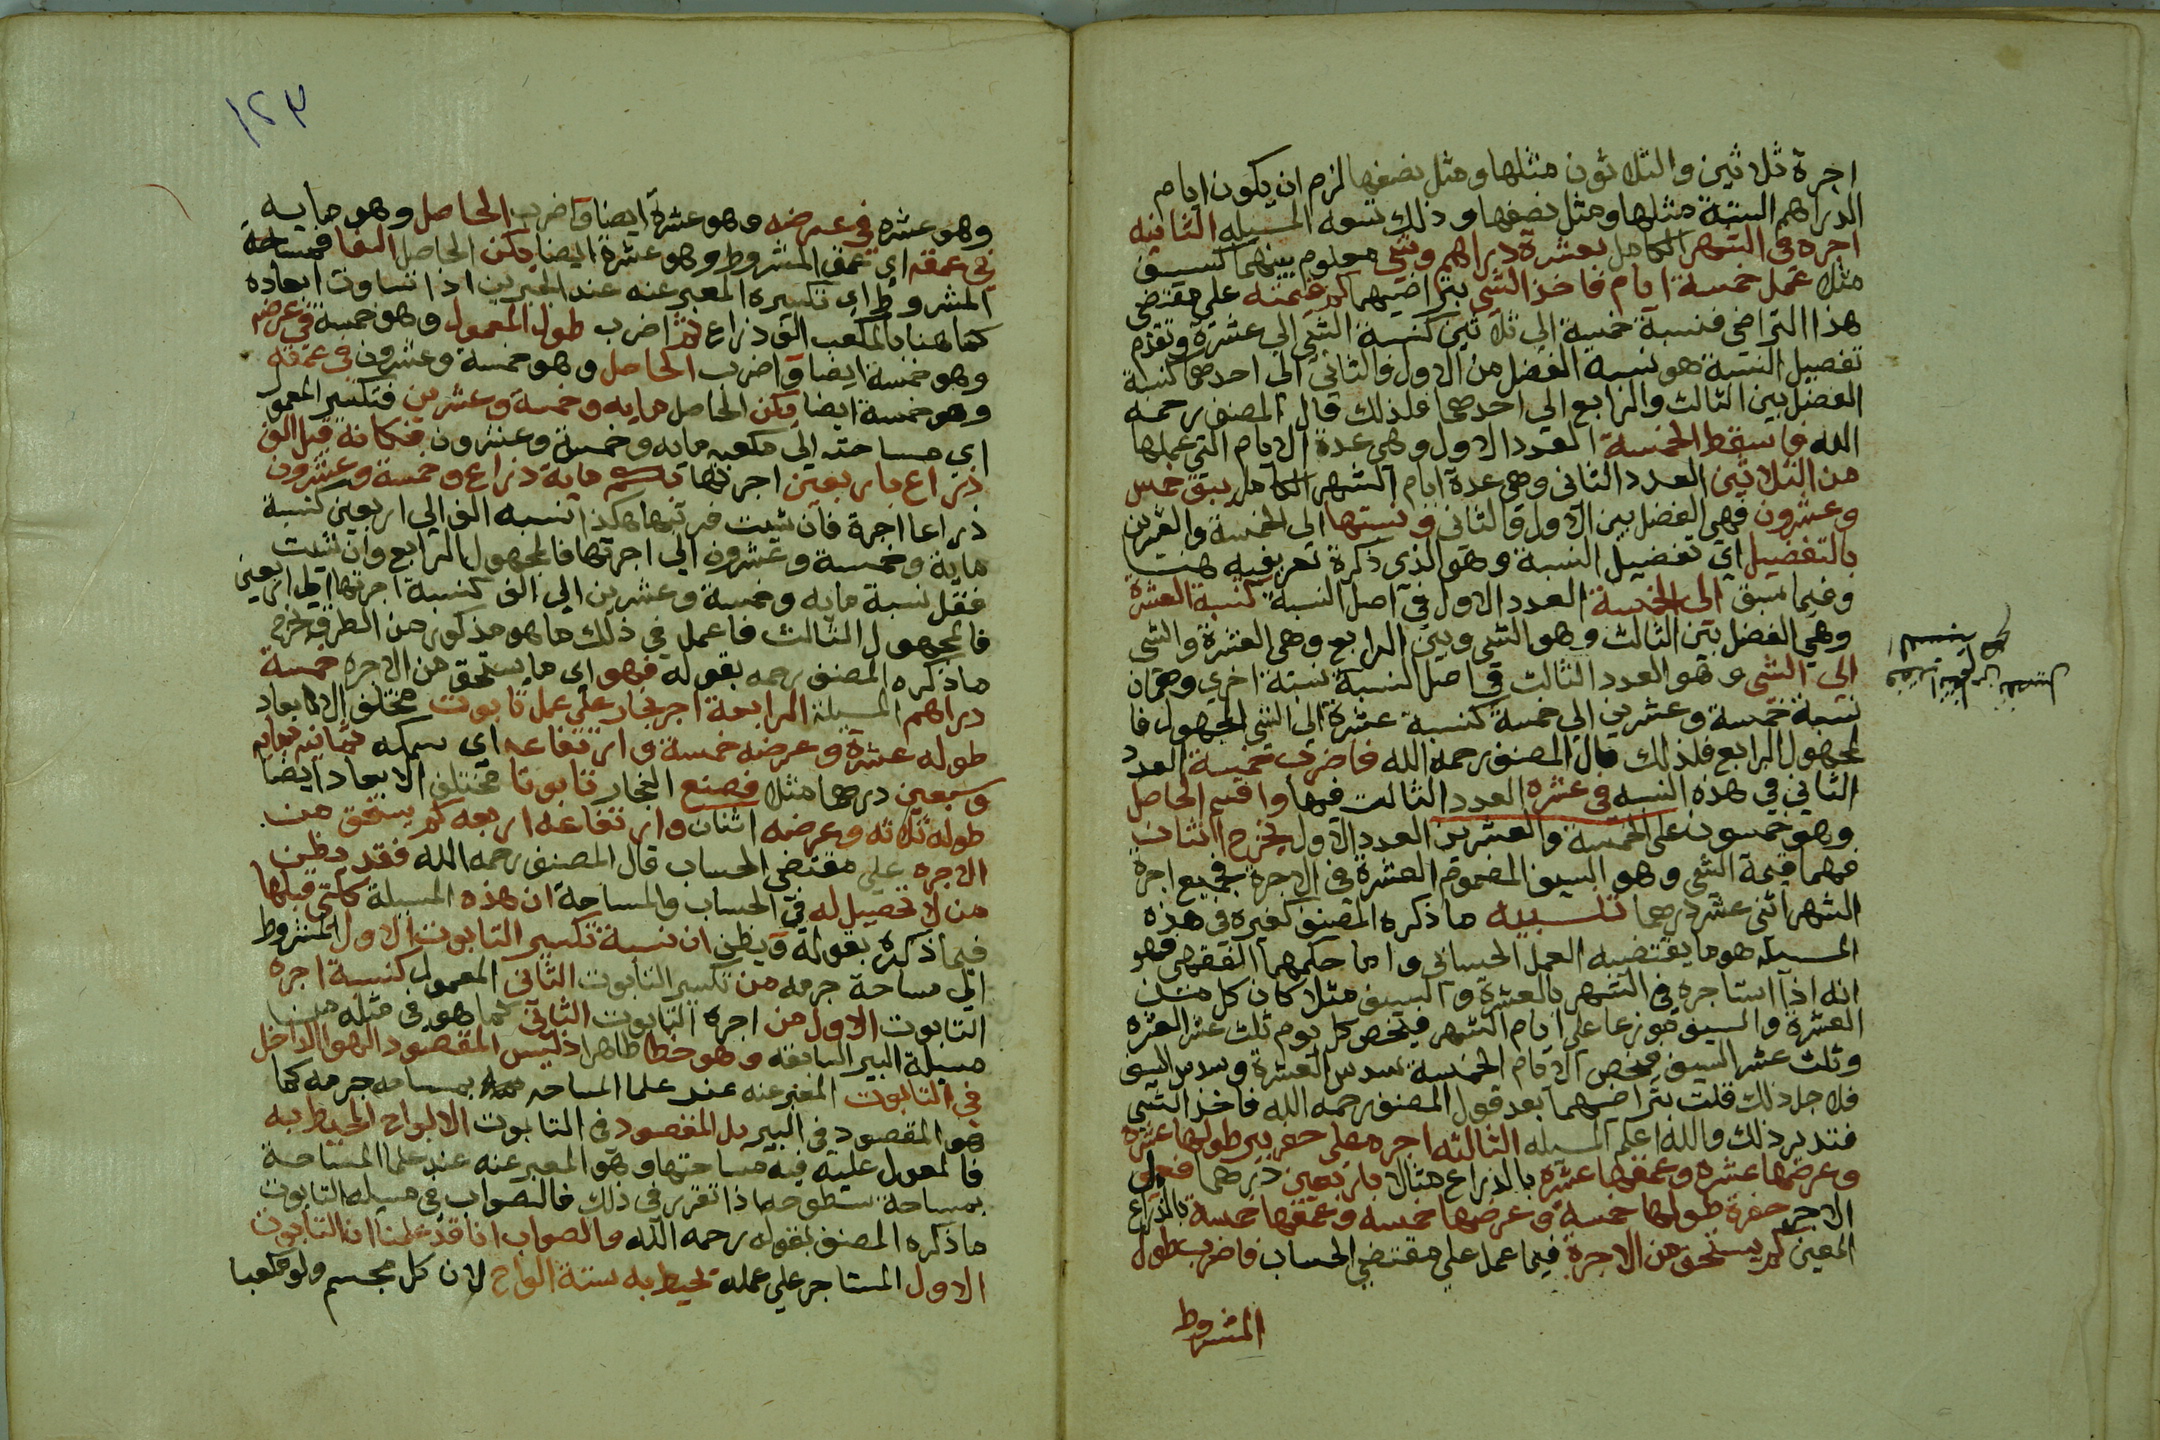 اجرة ثلاثين والثلاثون مثلها ومثل نصفها لزم ان يكون ايام
الدراهم الستة مثلها ومثل نصفها وذلك تسعه المسيله الثانيه
اجره في الشهر الكامل بعشرة دراهم وشي معلوم بينهما كسيف
مثلا عمل خمسة ايام فاخذ الشي بتراضيهما كم قيمته علي مقتضي
هذا التراضي فنسبة خمسة الي ثلاثين كنسبة الشي الي عشرة وتقدم
تفصيل النسبة هو نسبة الفضل من الاول والثاني الي احدهما كنسبة
الفضل بين الثالث والرابع الي احدهما فلذلك قال المصنف رحمه
الله فاسقط الخمسة العدد الاول وهي عدة الايام التي عملها
من الثلاثين العدد الثاني وهي عدة ايام الشهر الكامل يبق خمس
وعشرون فهي الفضل بين الاول والثاني ونسبتها الي الخمسة والعشرين
بالتفضيل اي تفضيل النسبة وهو الذي ذكرة تعريفه هنا
وفيما سبق الي الخمسة العدد الاول في اصل النسبة كنسبة العشرة
وهي الفضل بين الثالث وهو الشي وبين الرابع وهي العشرة والشي
الي الشي وهو العدد الثالث في اصل النسبة نسبة اخري وهي ان
نسبة خمسة وعشرين الي خمسة كنسبة عشرة الي الشي المجهول فا
لمجهول الرابع فلذلك قال المصنف رحمه الله فاضرب خمسة العدد
الثاني في هذه النسبه في عشره العدد الثالث فيها واقسم الحاصل
وهو خمسون علي الخمسة والعشرين العدد الاول يخرج اثنان
فهما قيمة الشي وهو السيف المضموم العشرة في الاجرة فجميع اجرة
الشهر اثني عشر درهما تنبيه ما ذكره المصنف كغيره في هذه
المسيله هو ما يقتضيه العمل الحسابي واما حكمهما الفقهي فهو
انه اذا استاجره في الشهر بالعشرة والسيف مثلا كان كل من
العشرة والسيف موزعا علي ايام الشهر فيخص كل يوم ثلث عشر العشره
وثلث عشر السيف فيخص الايام الخمسة سدس العشرة وسدس السيف
فلاجل ذلك قلت بتراضيهما بعد قول المصنف رحمه الله فاخذ الشي
فتدبر ذلك والله اعلم المسيله الثالثه اجره علي حفر بير طولها عشرة
وعرضها عشره وعمقها عشره بالذراع مثالا باربعين درهما فعمل
الاجير حفرة طولها خمسة وعرضها خمسه وعمقها خمسة بالذراع
المعين كم يستحق من الاجرة فيما عمل علي مقتضي الحساب فاضرب طول
المشروط
١٢٣
وهو عشره في عرضه وهو عشرة ايضا واضرب الحاصل وهو مايه
في عمقه اي عمق المشروط وهو عشرة ايضا يكن الحاصل الفا فمساحة
المشروط اي تكسيره المعبر عنه عند الجبريين اذا تساوت ابعاده
كما هنا بالمكعب الف ذراع ثم اضرب طول المعمول وهو خمسة في عرضه
وهو خمسة ايضا واضرب الحاصل وهو خمسة وعشرون في عمقه
وهو خمسة ايضا يكن الحاصل مايه وخمسة وعشرين فتكسير المعمول
اي مساحته الي مكعبه مايه وخمسة وعشرون فكانه قيل الف
ذراع باربعين اجرتها كم مايه ذراع وخمسة وعشرون
ذراعا اجرة فان شيت فرتبها هكذا نسبه الف الي اربعين كنسبة
ماية وخمسة وعشرون الي اجرتها فالمجهول الرابع وان شيت
فقل نسبة مايه وخمسة وعشرين الي الف كنسبة اجرتها الي اربعين
فالمجهول الثالث فاعمل في ذلك ما هو مذكور من الطرق يخرج
ما ذكره المصنف رحمه بقوله فهو اي ما يستحق من الاجره خمسة
دراهم المسيلة الرابعة اجر نجار علي عمل تابوت مختلف الابعاد
طوله عشرة وعرضه خمسة وارتفاعه اي سمكه ثمانيه بمايه
وسبعين درهما مثلا فصنع النجار تابوتا مختلف الابعاد ايضا
طوله ثلاثه وعرضه اثنان وارتفاعه اربعه كم يستحق من
الاجره علي مقتضي الحساب قال المصنف رحمه الله فقد يظن
من لا تحصيل له في الحساب والمساحة ان هذه المسيلة كالتي قبلها
فيما ذكره بقوله ويظن ان نسبة تكسير التابوت الاول المشروط
اي مساحة جرمه من تكسير التابوت الثاني المعمول كنسبة اجره
التابوت الاول من اجرة التابوت الثاني كما هو في مثله من
مسيلة البير السابقه وهو خطا ظاهر اذ ليس المقصود الهوا الداخل
في التابوت المعبر عنه عند علما المساحه بمساحه جرمه كما
هو المقصود في البير بل المقصود في التابوت الالواح المحيط به
فالمعول عليه فيه مساحتها وهو المعبر عنه عند علما المساحة
بمساحة سطوحه اذا تقرر في ذلك فالصواب في مسيله التابوت
ما ذكره المصنف بقوله رحمه الله والصواب انا قد علمنا ان التابوت
الاول المستاجر علي عمله تحيط به ستة الواح لان كل مجسم ولو مكعبا